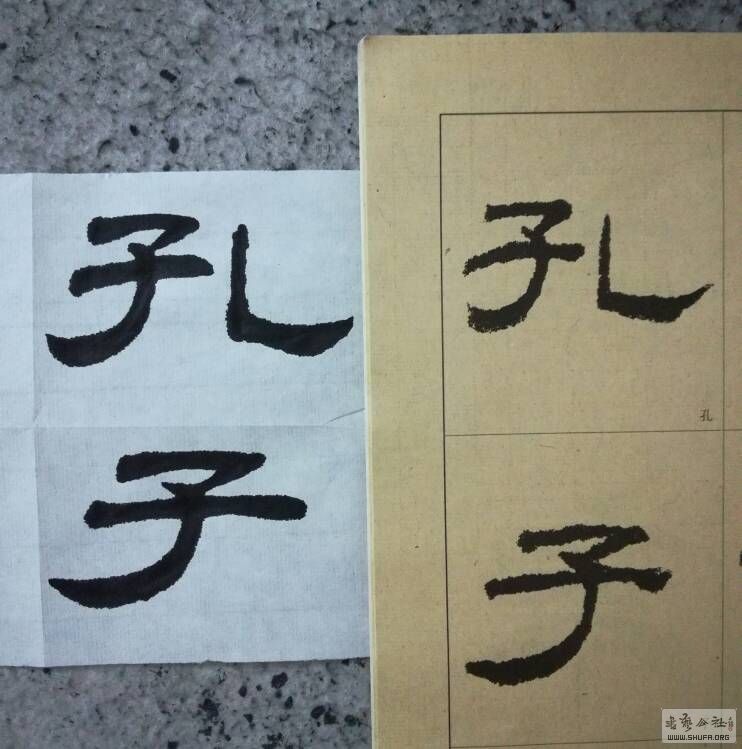 孔
子
孔
孔
子
书艺公社
WWW.SHUFA.ORG